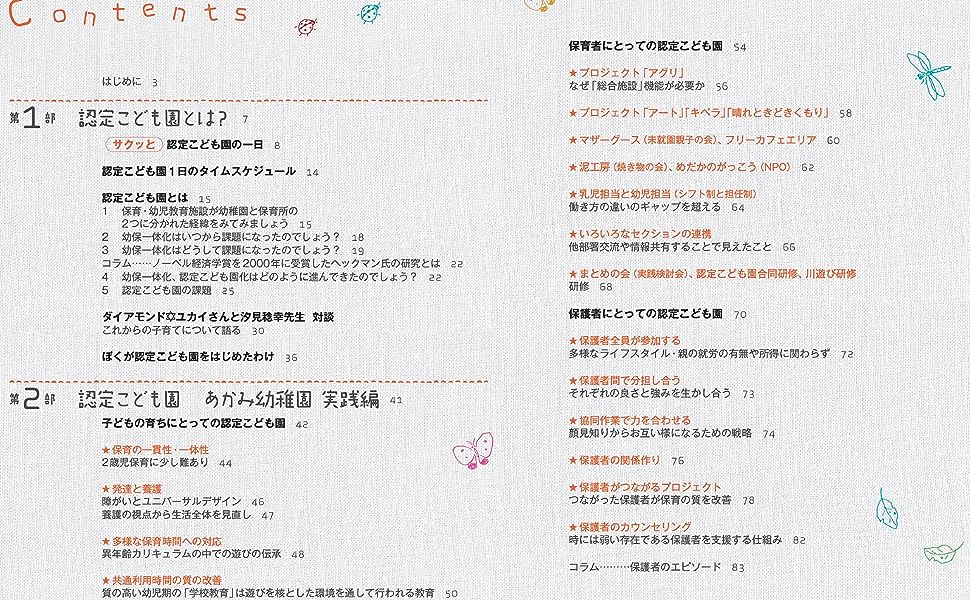 Contents
はじめに 3
第1部 認定こども園とは? 7
サクッと 認定こども園の一日 8
認定こども園1日のタイムスケジュール 14
認定こども園とは 15
1 保育・幼児教育施設が幼稚園と保育所の
2つに分かれた経緯をみてみましょう 15
2 幼保一体化はいつから課題になったのでしょう? 18
3 幼保一体化はどうして課題になったのでしょう? 19
コラム……ノーベル経済学賞を2000年に受賞したヘックマン氏の研究とは 22
4 幼保一体化、認定こども園化はどのように進んできたのでしょう? 22
5 認定こども園の課題 25
ダイアモンド✡ユカイさんと汐見稔幸先生 対談
これからの子育てについて語る 30
ぼくが認定こども園をはじめたわけ 36
第2部 認定こども園 あかみ幼稚園 実践編 41
子どもの育ちにとっての認定こども園 42
★保育の一貫性・一体性
2歳児保育に少し難あり 44
★発達と養護
障がいとユニバーサルデザイン 46
養護の視点から生活全体を見直し 47
★多様な保育時間への対応
異年齢カリキュラムの中での遊びの伝承 48
★共通利用時間の質の改善
質の高い幼児期の「学校教育」は遊びを核とした環境を通して行われる教育 50
保育者にとっての認定こども園 54
★プロジェクト「アグリ」
なぜ「総合施設」機能が必要か 56
★プロジェクト「アート」「キベラ」「晴れときどきくもり」 58
★マザーグース(未就園親子の会)、フリーカフェエリア 60
★泥工房(焼き物の会)、めだかのがっこう(NPO) 62
★乳児担当と幼児担当(シフト制と担任制)
働き方の違いのギャップを超える 64
★いろいろなセクションの連携
他部署交流や情報共有することで見えたこと 66
★まとめの会(実践検討会)、認定こども園合同研修、川遊び研修
研修 68
保護者にとっての認定こども園 70
★保護者全員が参加する
多様なライフスタイル・親の就労の有無や所得に関わらず 72
★保護者間で分担し合う
それぞれの良さと強みを生かし合う 73
★協同作業で力を合わせる
顔見知りからお互い様になるための戦略 74
★保護者の関係作り 76
★保護者がつながるプロジェクト
つながった保護者が保育の質を改善 78
★保護者のカウンセリング
時には弱い存在である保護者を支援する仕組み 82
コラム………保護者のエピソード 83